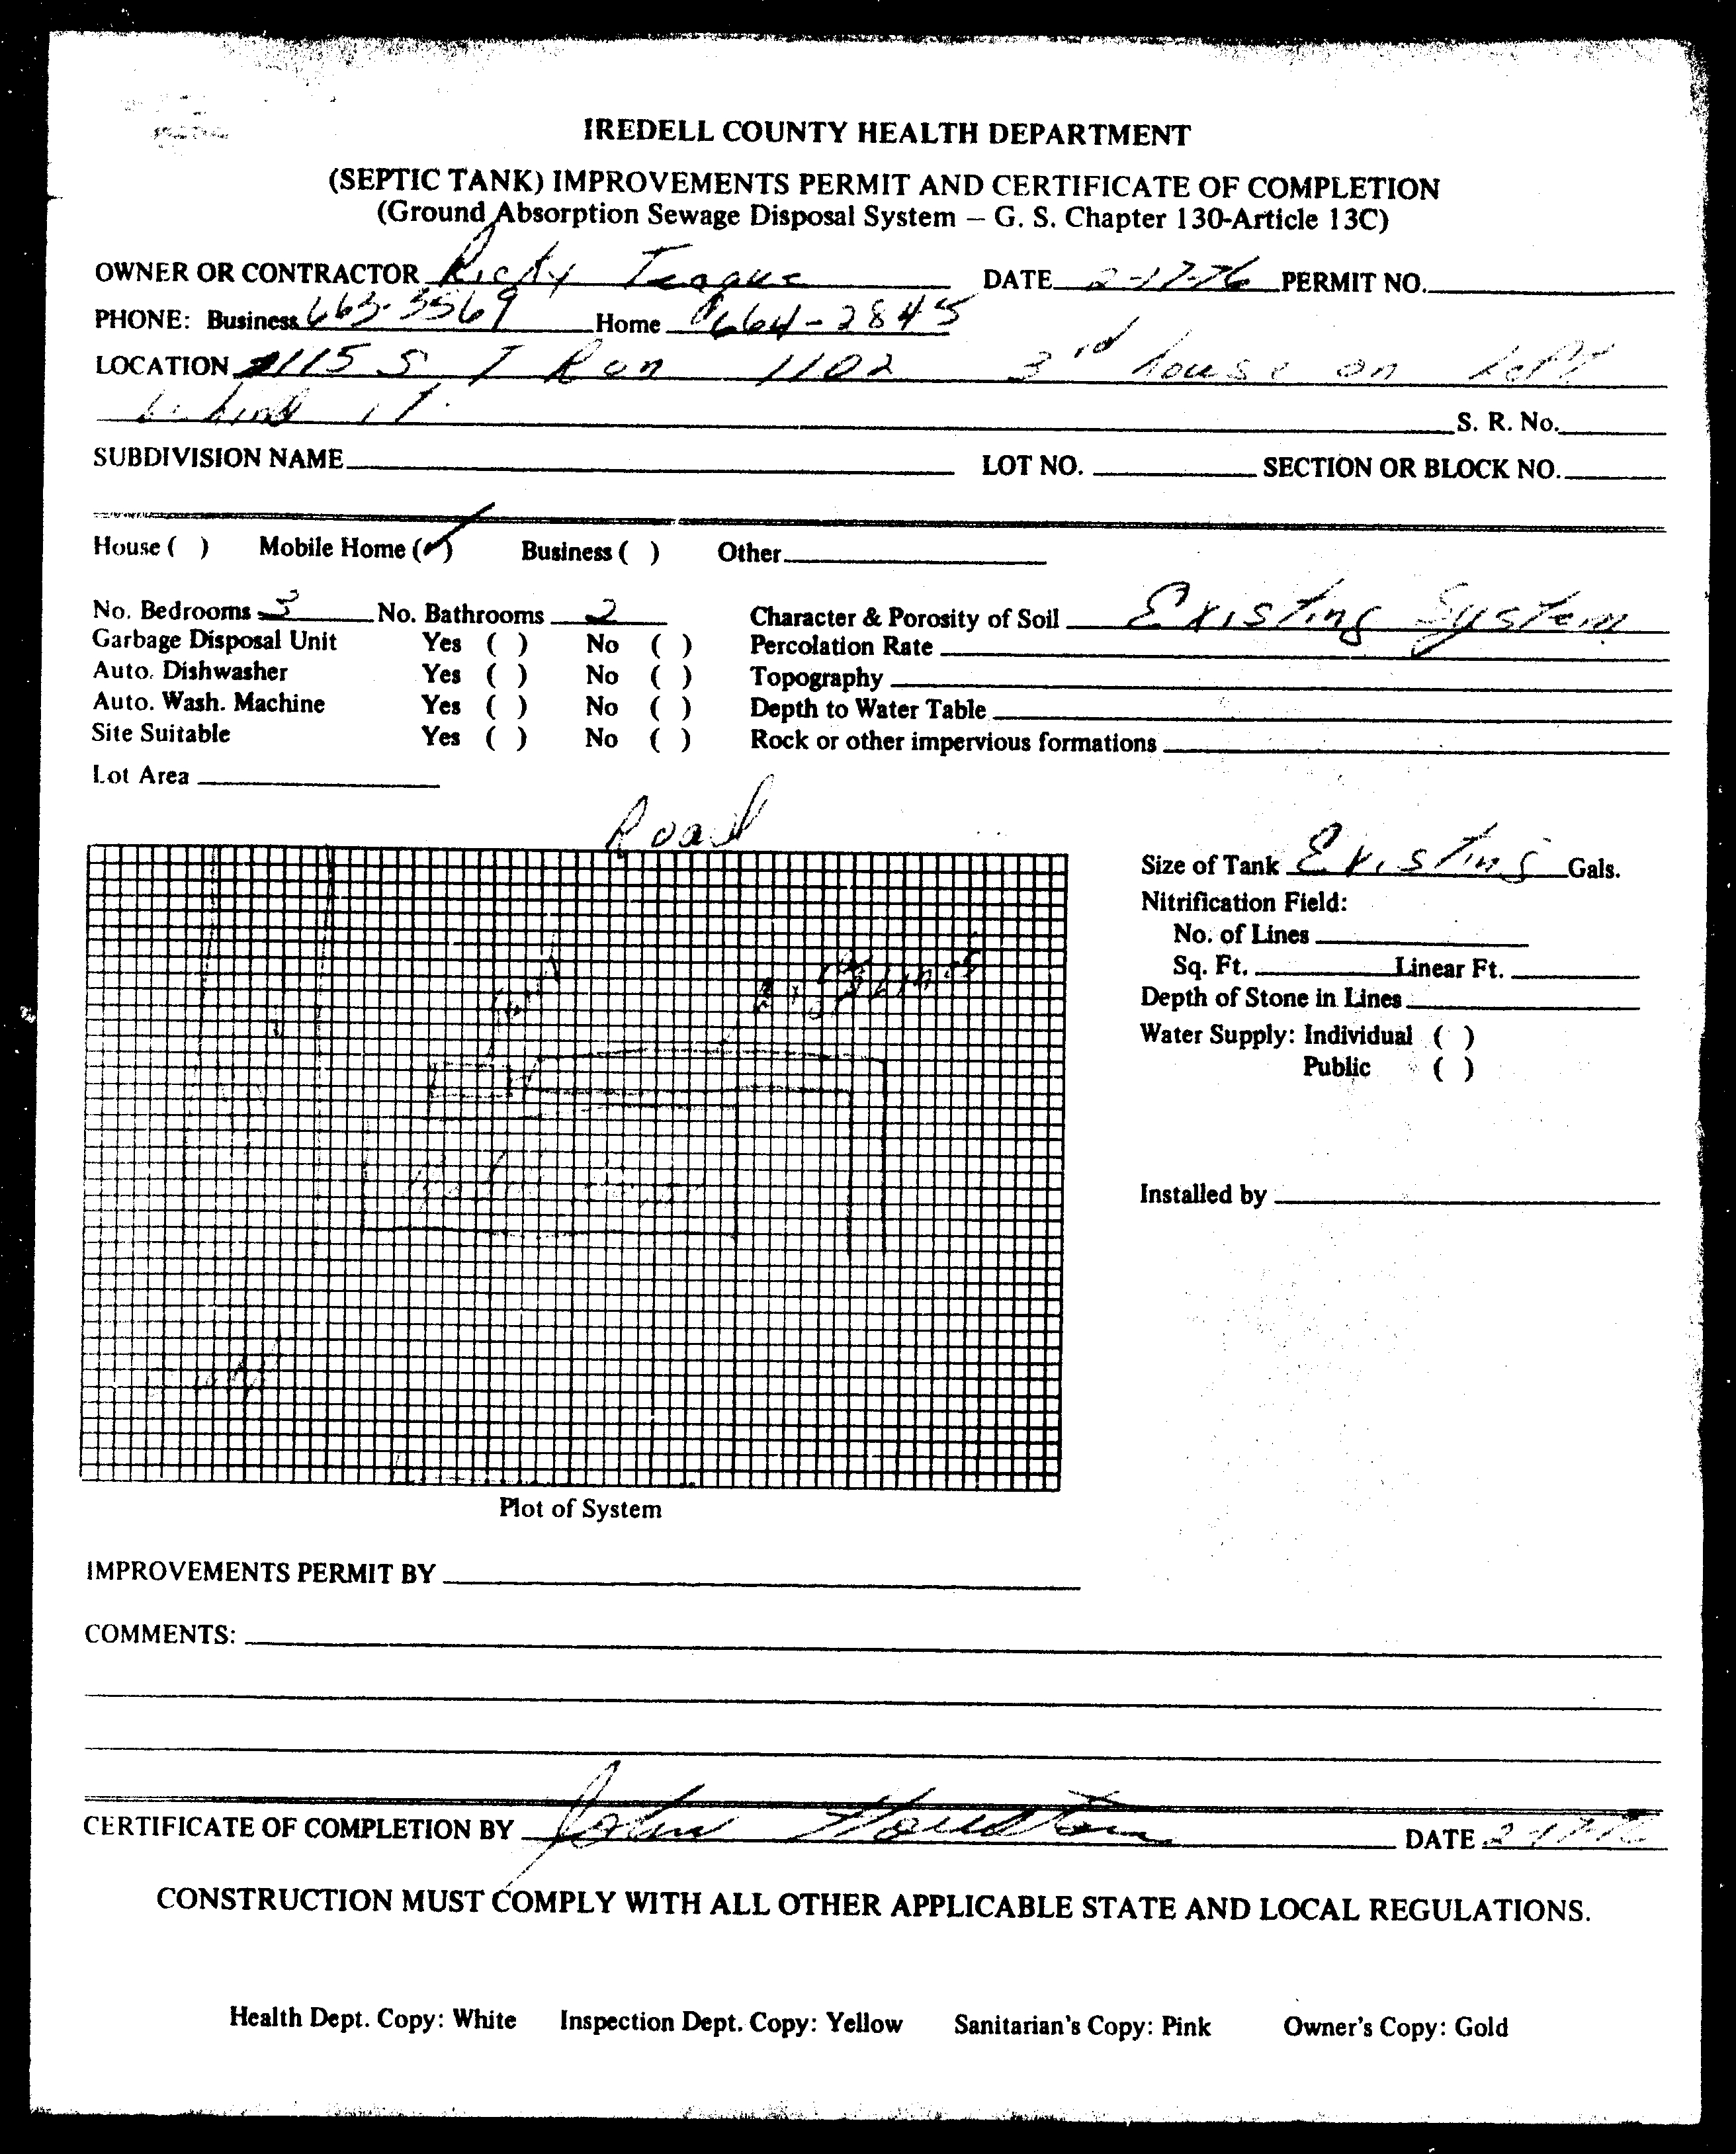 IREDELL COUNTY HEALTH DEPARTMENT
(SEPTIC TANK) IMPROVEMENTS PERMIT AND CERTIFICATE OF COMPLETION
(Ground Absorption Sewage Disposal System – G. S. Chapter 130-Article 13C)
OWNER OR CONTRACTOR Ricky Teague DATE 2-17-76 PERMIT NO.
PHONE: Business 663-3569 Home 664-2845
LOCATION 115 S T R on 1102 3rd house on left
behind it. S. R. No.
SUBDIVISION NAME LOT NO. SECTION OR BLOCK NO.
House ( ) Mobile Home (✓) Business ( ) Other
No. Bedrooms 3 No. Bathrooms 2 Character & Porosity of Soil Existing System
Garbage Disposal Unit Yes ( ) No ( ) Percolation Rate
Auto. Dishwasher Yes ( ) No ( ) Topography
Auto. Wash. Machine Yes ( ) No ( ) Depth to Water Table
Site Suitable Yes ( ) No ( ) Rock or other impervious formations
Lot Area
Road
Size of Tank Existing Gals.
Nitrification Field:
No. of Lines
Sq. Ft. Linear Ft.
Depth of Stone in Lines
Water Supply: Individual ( )
Public ( )
Installed by
Plot of System
IMPROVEMENTS PERMIT BY
COMMENTS:
CERTIFICATE OF COMPLETION BY John Houston DATE 2-17-76
CONSTRUCTION MUST COMPLY WITH ALL OTHER APPLICABLE STATE AND LOCAL REGULATIONS.
Health Dept. Copy: White Inspection Dept. Copy: Yellow Sanitarian's Copy: Pink Owner's Copy: Gold